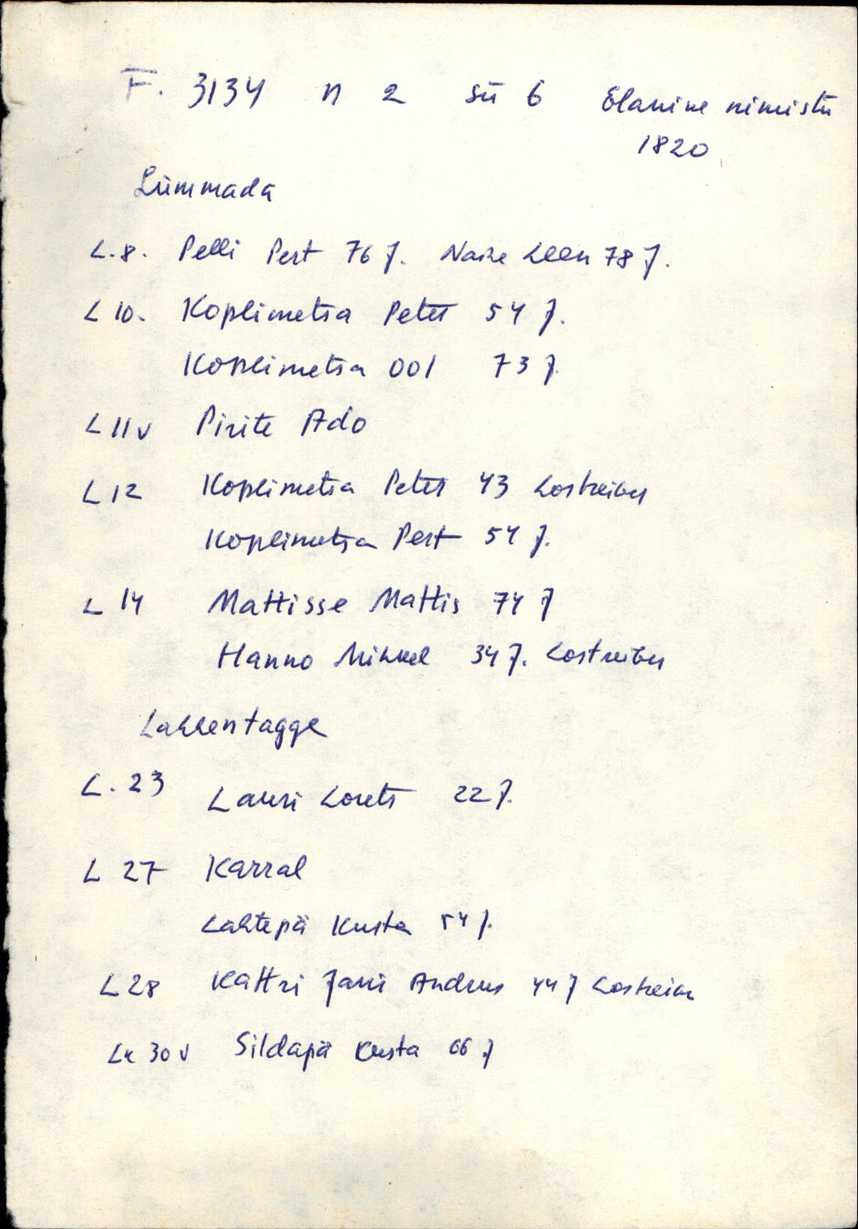 F. 3134 n 2 sü 6 Elanike nimistu
1820
Lümmada
L.8. Pelli Pert 76 J. Naine Leen 78 J.
L 10. Koplimetsa Peter 54 J.
Koplimetsa 001 73 J.
L 11v Pirite Ado
L 12 Koplimetsa Peter 43 Lostreiber
Koplimetsa Pert 54 J.
L 14 Mattisse Mattis 74 J
Hanno Mihkel 34 J. Lostreiber
Lahhentagge
L. 23 Lauri Lorets 22 J.
L 27 Karral
Lahtepä Kusta 54 J.
L 28 Kattri Jani Andrus 44 J Lostreiber
Lk 30 v Sildapä Kusta 66 J